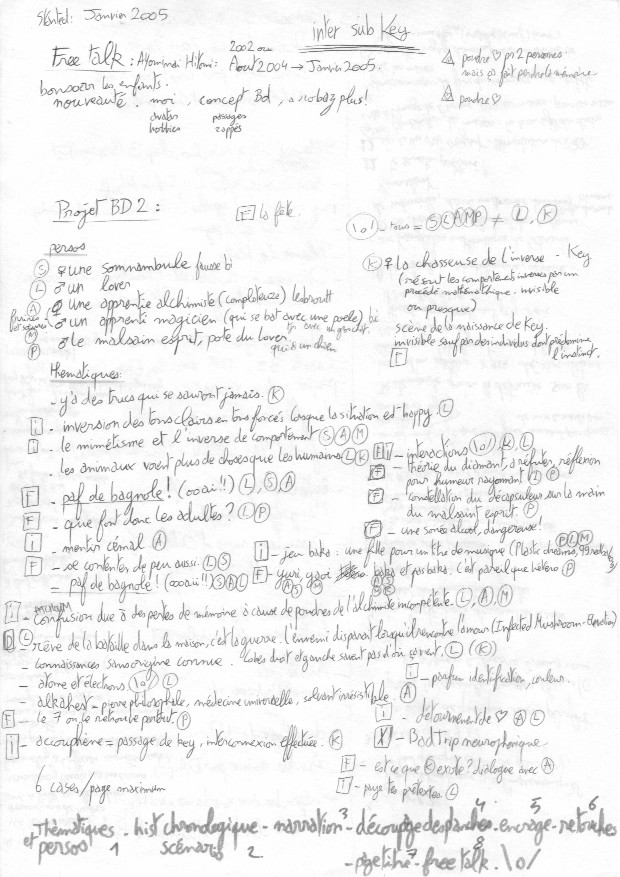 Started: Janvier 2005
inter sub Key
Free talk : Hitomi : 2002 ou Aout 2004 → Janvier 2005.
bonsoir les enfants.
nouveauté. moi, concept Bd, plus!
avatar passages
hobbies zappés
poudre ♡ pr 2 personnes
mais ça fait perdre la mémoire.
poudre ♡
Projet BD 2 :
F la fête.
\o/ - tous = S L A M P ≠ L, K
persos
S ♀ une somnambule fausse bi
L ♂ un lover
A ♀ une apprentie alchimiste (comploteuze)
M ♂ un apprenti magicien (qui se bat avec une poele) bi
P ♂ le malsain esprit, pote du lover
qui a un chien
K ♀ la chasseuse de l'inverse - Key
(né sont les comportements inverses par un
procédé mathématique. invisible
ou presque)
scène de la naissance de Key.
invisible sauf par des individus dont prédomine
l'instinct.
F
thématiques:
- y'a des trucs qui se sauront jamais. K
i - inversion des tons clairs en tons forcés lorsque la situation est happy. L
i - le mimétisme et l'inverse de comportement S A M
. les animaux voient plus de choses que les humains L K
F - paf de bagnole! (ooai!!) L, S, A
F - que font donc les adultes? L P
i - mentir cémal A
F - se contenter de peu aussi. L S
= paf de bagnole! (oooaii!!) S A L
F i - interactions \o/, K, L
F - théorie du diamant, à réfuter, réflexion
pour humeur rayonnant L P
F - constellation du décapsuleur sur la main
du malsain esprit. P
F - une soirée alcool, dangereuse!
i - jeu baka : une fille pour un titre de musique (Plastic dreams, 99 P L M
F - yuri, yaoi baka et pas baka, c'est pareil que hétéro P
A S M
i - confusion due à des pertes de mémoire à cause de poudres de l'alchimiste incompétente. L, A, M
L - rêve de la bataille dans la maison, c'est la guerre. l'ennemi disparait lorsqu'il rencontre l'amour (Infected Mushroom -
- connaissances sans origine connue. lobes droit et gauche savent pas d'où ça vient. L (K)
- atome et électrons. \o/ L
- alkahest = pierre philosophale, médecine universelle, solvant irrésistible. A
F - le 7 on le retrouve partout. P
i - accouphène = passage de key, interconnexion effectuée. K
i - parfum identification, couleur.
i - détournement de ♡ A L
X - Bad Trip neurophonique.
F - est ce que existe? dialogue avec A
i - prétextes L
6 cases/page maximum
thématiques et persos 1 - hist chronologique scénario 2 - narration 3 - découpage des planches 4 - encrage 5 - retouches 6
- pge titre 7 - free talk 8. \o/